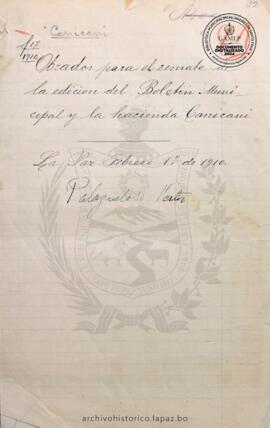 "Canicani
1910
Obrados para el remate de
la edicion del Boletin Muni-
cipal y la hacienda Canicani
La Paz Febrero 1º de 1910.
DOCUMENTO
DIGITALIZADO
archivohistorico.lapaz.bo